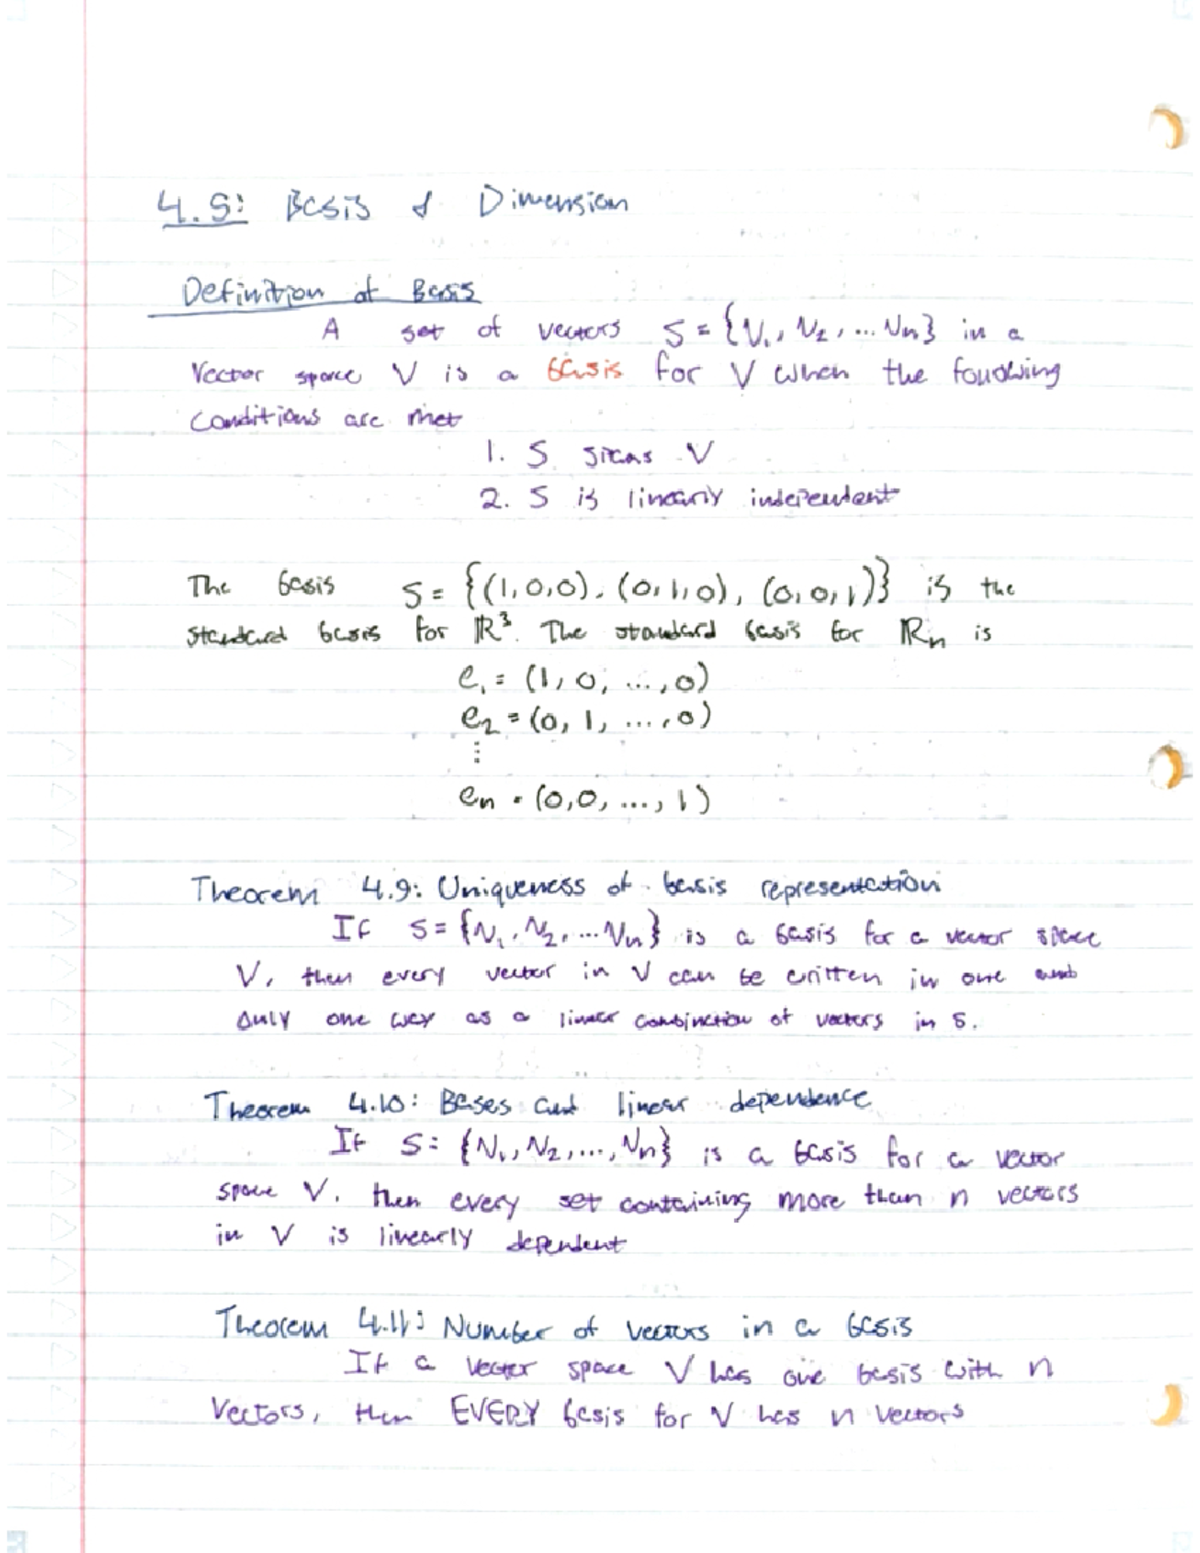 4.5: Basis & Dimension
Definition of Basis
A set of vectors S = {V₁, V₂, ... Vn} in a
Vector space V is a basis for V when the following
conditions are met
1. S spans V
2. S is linearly independent
The basis S = {(1,0,0), (0,1,0), (0,0,1)} is the
standard basis for ℝ³. The standard basis for ℝn is
e₁ = (1, 0, ..., 0)
e₂ = (0, 1, ..., 0)
⋮
en = (0,0, ..., 1)
Theorem 4.9: Uniqueness of basis representation
If S = {V₁, V₂, ... Vn} is a basis for a vector space
V, then every vector in V can be written in one and
only one way as a linear combination of vectors in S.
Theorem 4.10: Bases and linear dependence
If S = {V₁, V₂, ..., Vn} is a basis for a vector
space V, then every set containing more than n vectors
in V is linearly dependent
Theorem 4.11: Number of vectors in a basis
If a vector space V has one basis with n
Vectors, then EVERY basis for V has n vectors